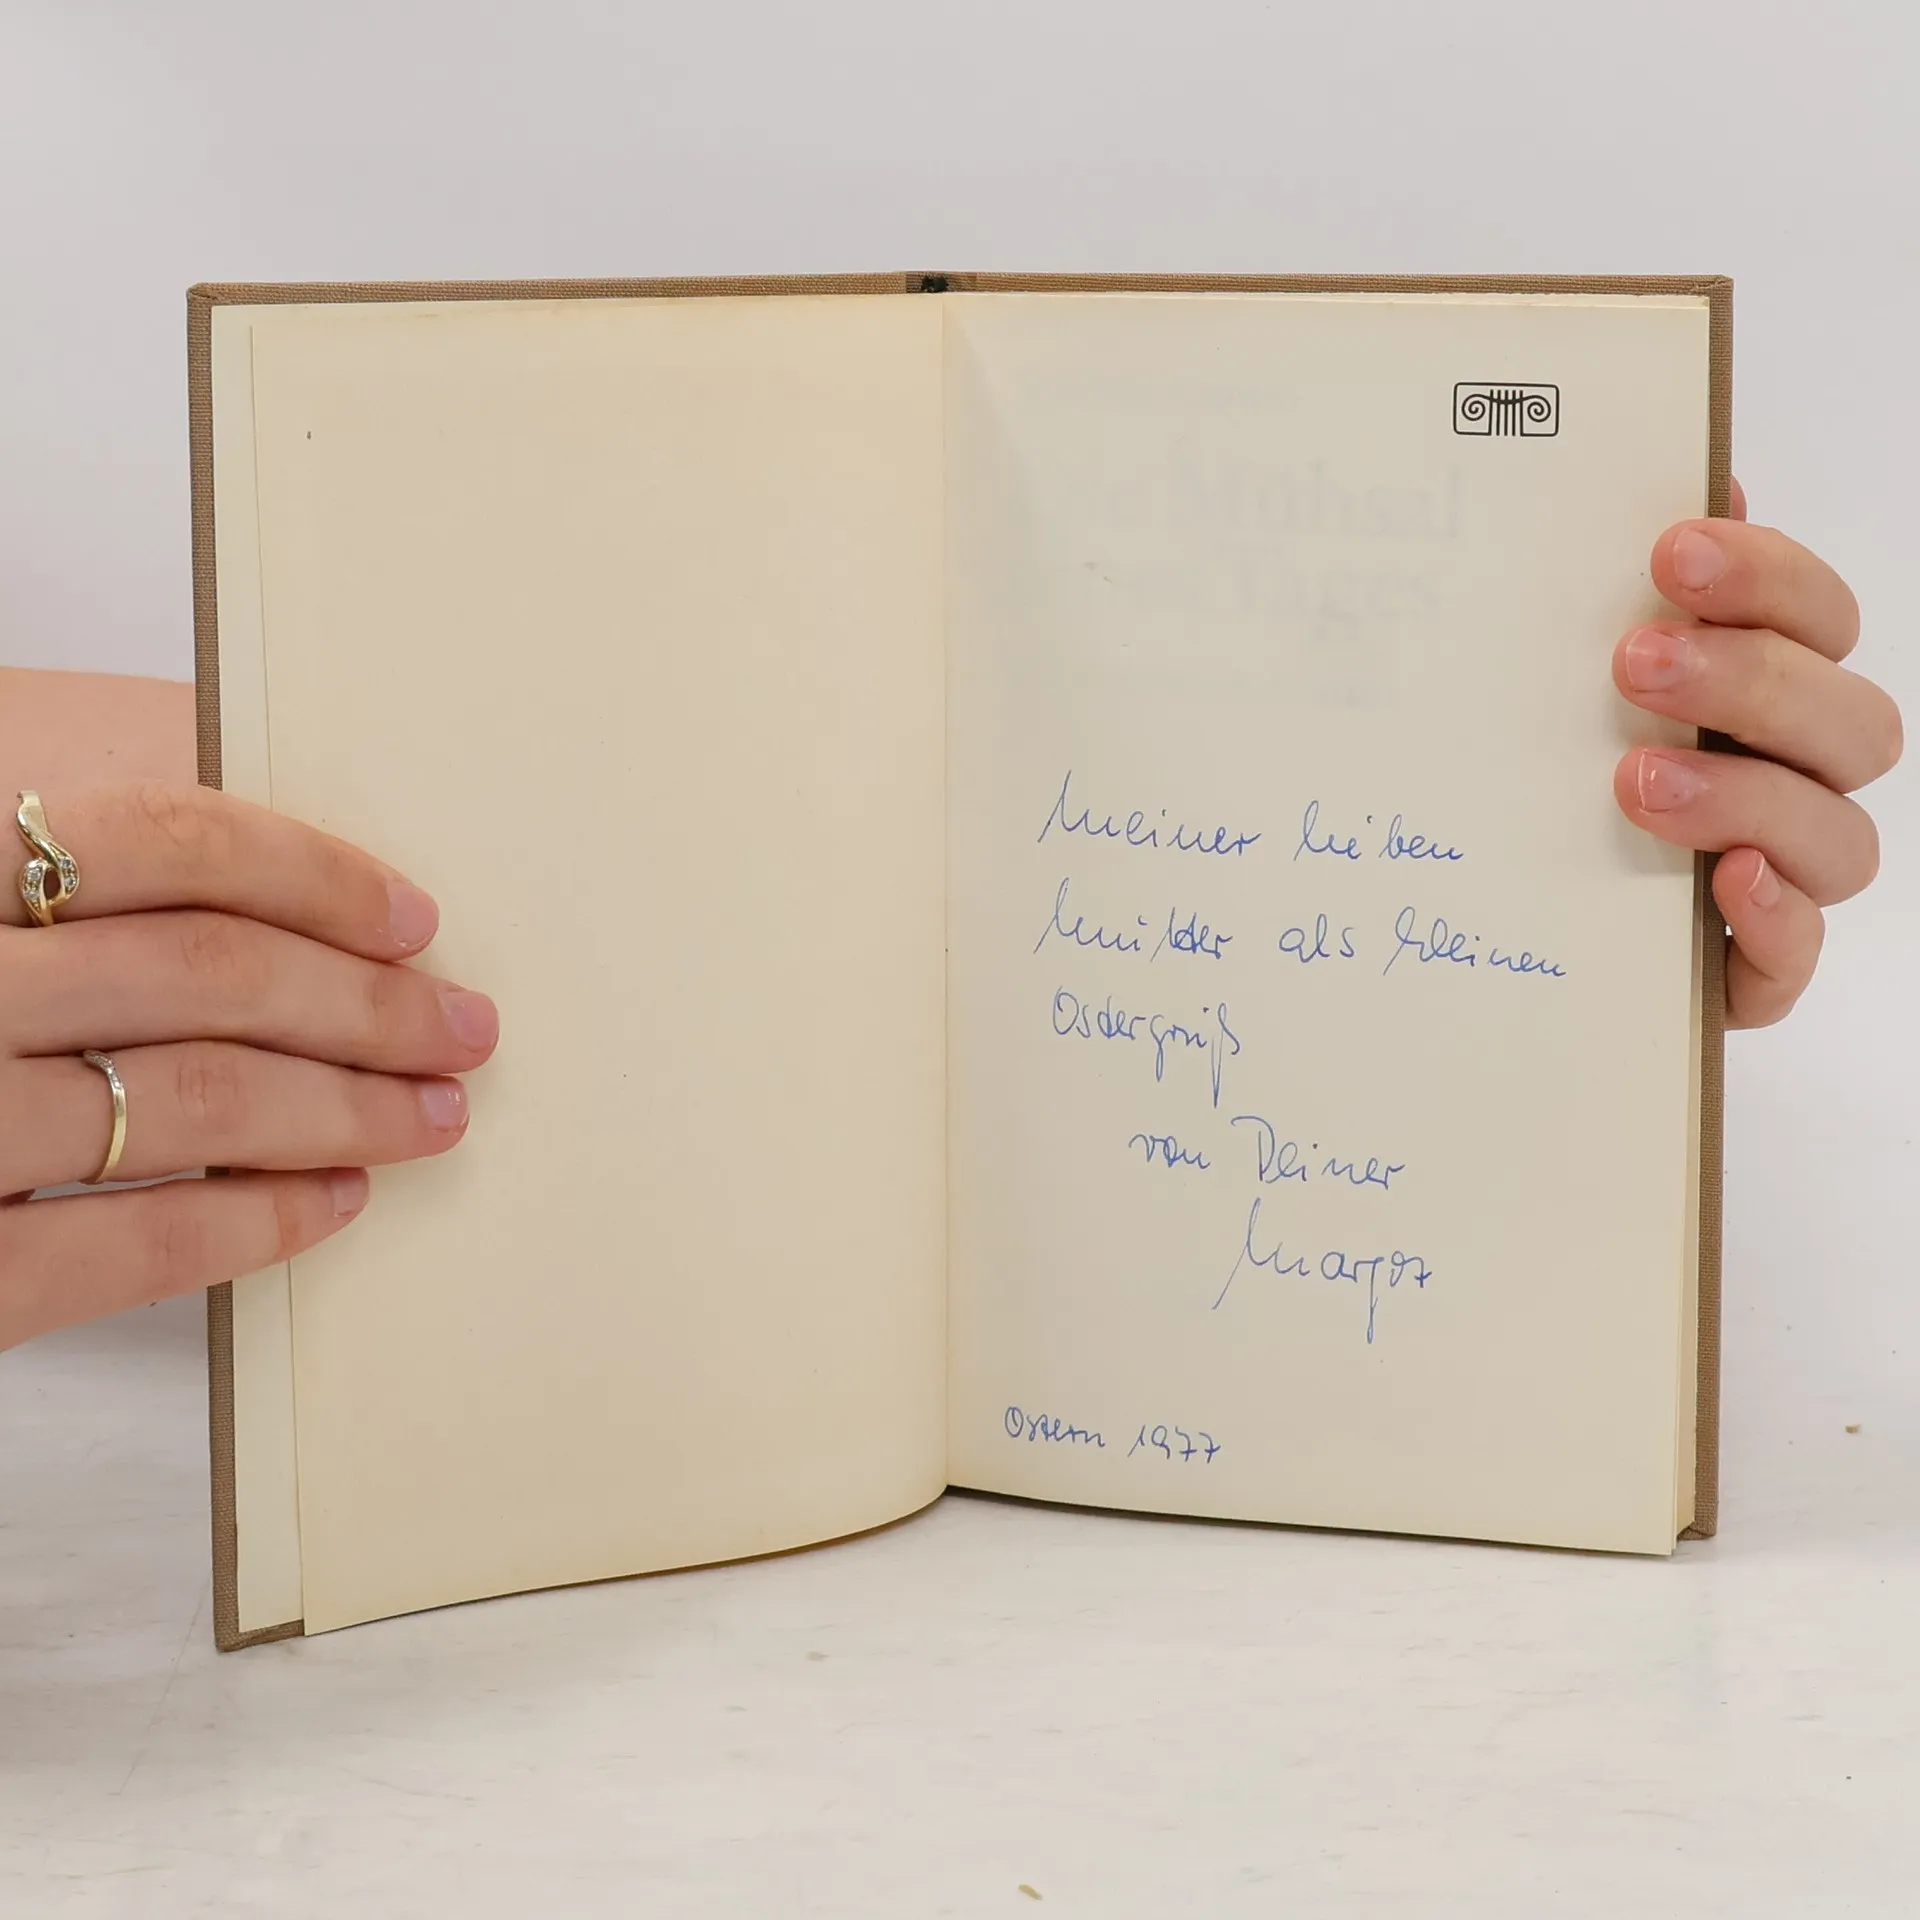 Mühsal
Tages
Meiner lieben
Mutter als kleinen
Ostergruß
von Deiner
Margot
Ostern 1977